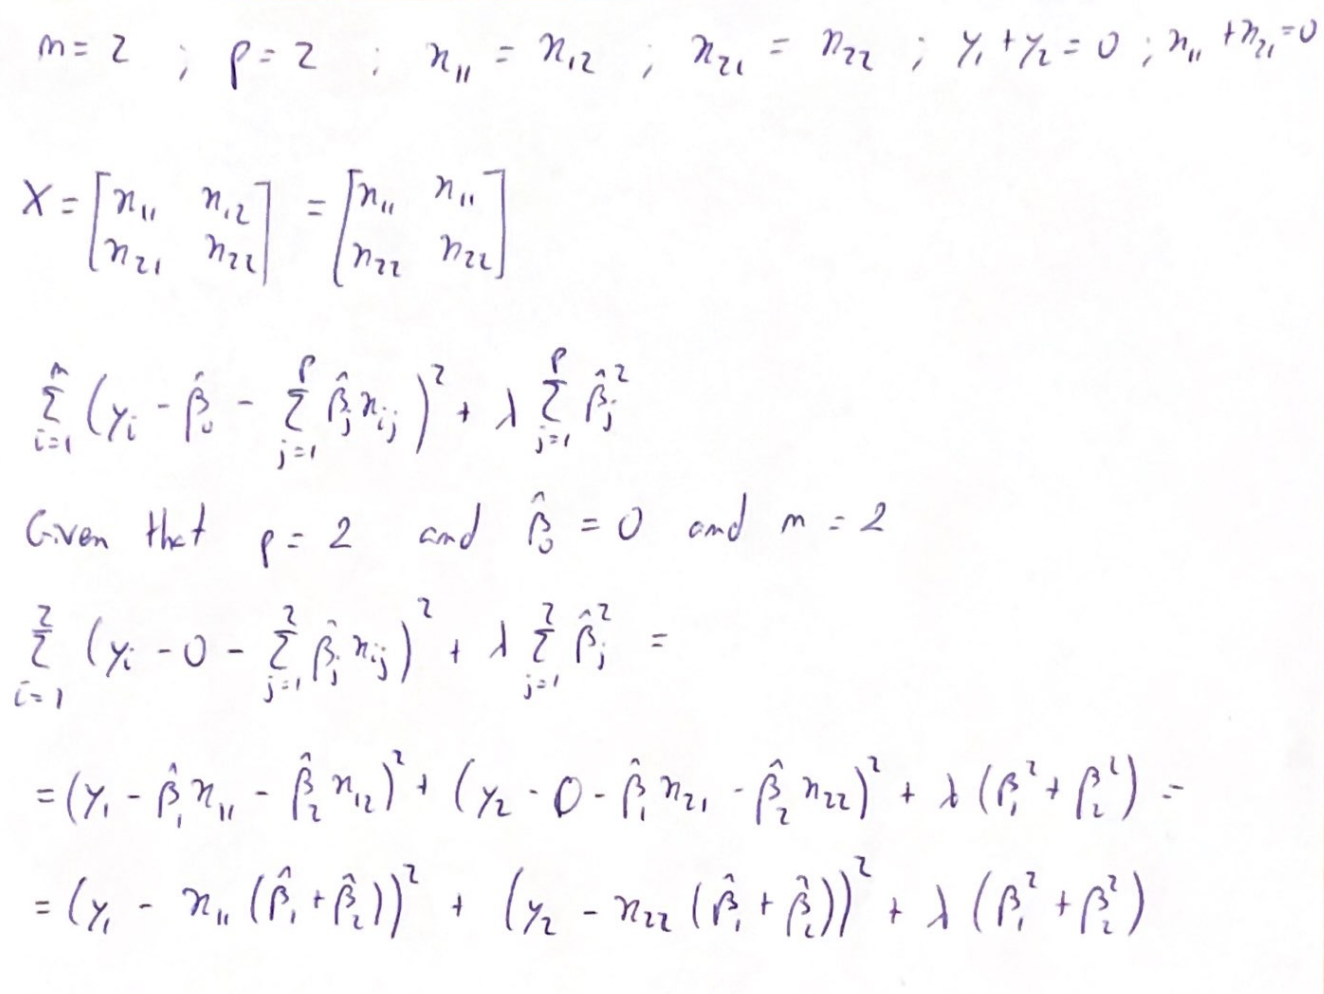 n = 2 ; p = 2 ; x₁₁ = x₁₂ ; x₂₁ = x₂₂ ; y₁ + y₂ = 0 ; x₁₁ + x₂₁ = 0
X = [x₁₁ x₁₂; x₂₁ x₂₂] = [x₁₁ x₁₁; x₂₂ x₂₂]
∑ᵢ₌₁ⁿ (yᵢ - β̂₀ - ∑ⱼ₌₁ᵖ β̂ⱼ xᵢⱼ)² + λ ∑ⱼ₌₁ᵖ β̂ⱼ²
Given that p = 2 and β̂₀ = 0 and n = 2
∑ᵢ₌₁² (yᵢ - 0 - ∑ⱼ₌₁² β̂ⱼ xᵢⱼ)² + λ ∑ⱼ₌₁² β̂ⱼ² =
= (y₁ - β̂₁ x₁₁ - β̂₂ x₁₂)² + (y₂ - 0 - β̂₁ x₂₁ - β̂₂ x₂₂)² + λ (β̂₁² + β̂₂²) =
= (y₁ - x₁₁ (β̂₁ + β̂₂))² + (y₂ - x₂₂ (β̂₁ + β̂₂))² + λ (β̂₁² + β̂₂²)